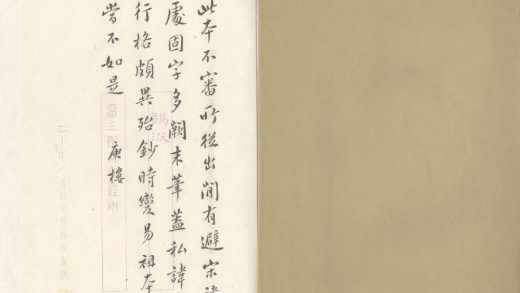 此本不審所從出閒有避宋
處固字多闕末筆蓋私諱
行格頗異殆鈔時變易祖本
當不如是
庚樓